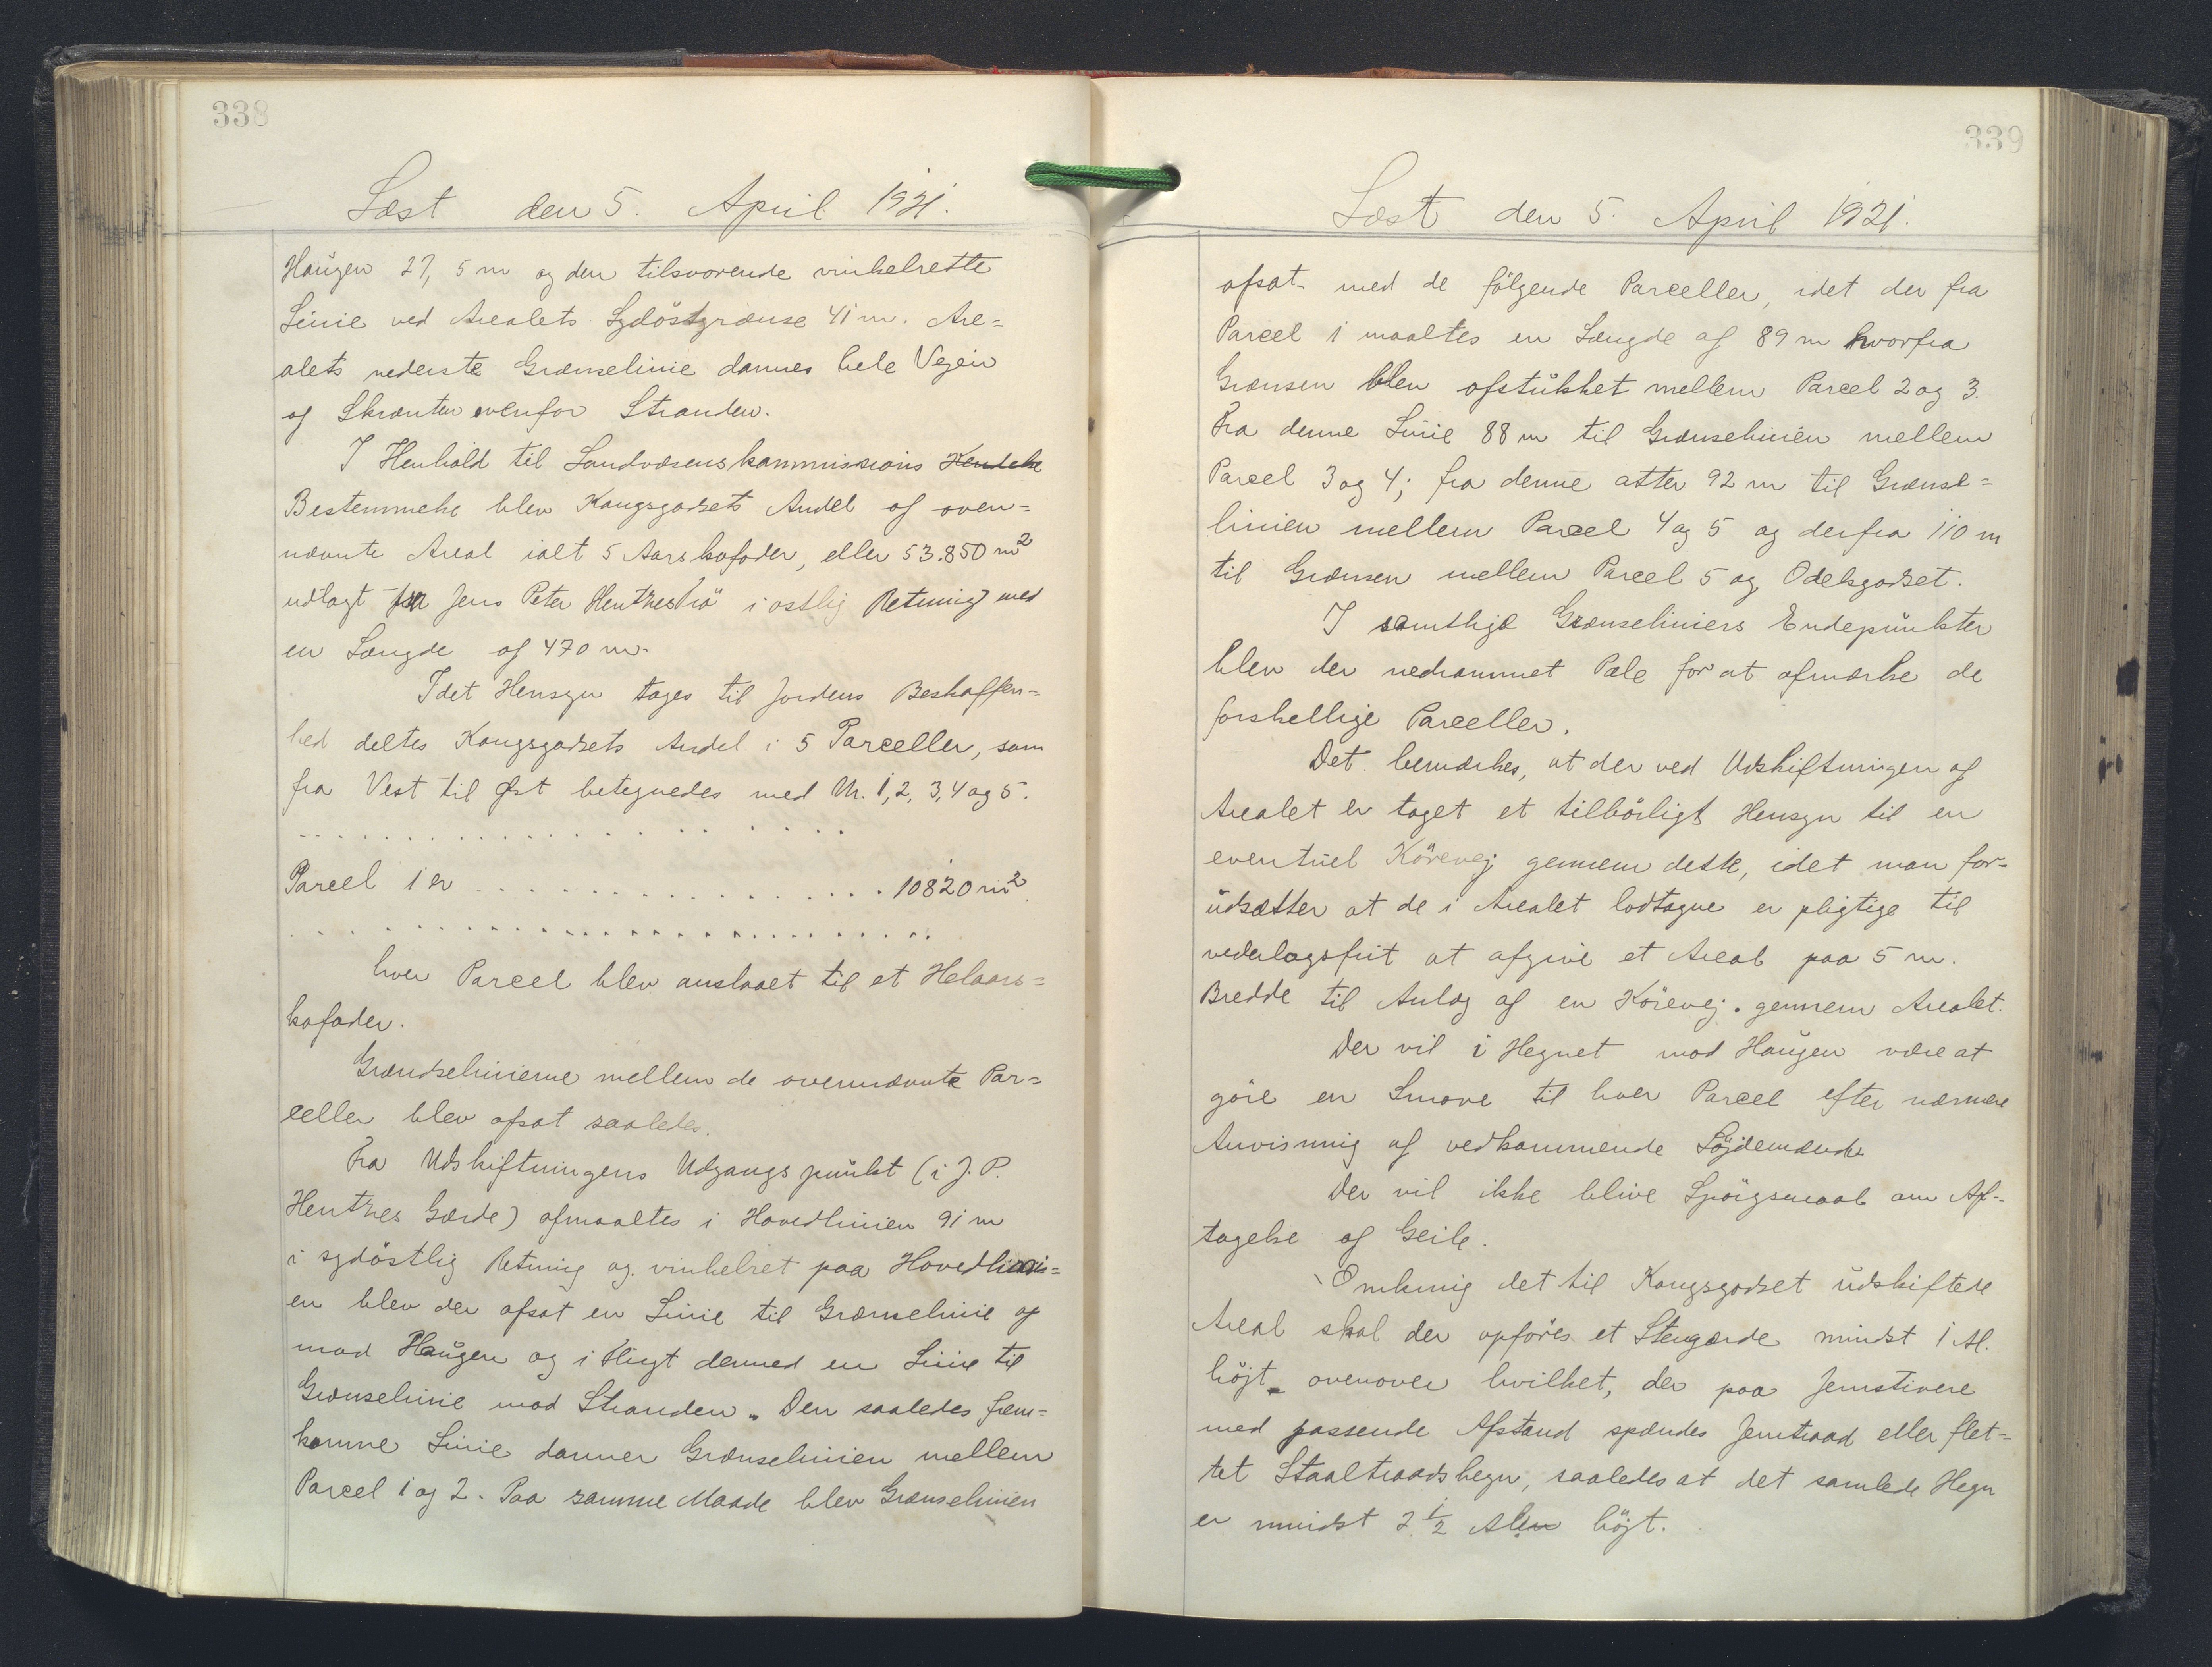 338
Læst den 5. April 1921.
Haugen 27,5 m og den tilsvarende vinkelrette
Linie ved Arealets Sydöstgrænse 41 m. Are=
alets nederste Grænselinie dannes hele Vejen
af Skrænten ovenfor Stranden.
I Henhold til Landvæsenskommissions Kendelse
Bestemmelse blev Kongsgodsets Andel af oven=
nævnte Areal ialt 5 Aarskofoder, eller 53.850 m²
udlagt fra Jens Peter Hentzes Trö i östlig Retning med
en Længde af 470 m.
Idet Hensyn tages til Jordens Beskaffen=
hed deltes Kongsgodsets Andel i 5 Parceller, som
fra Vest til Øst betegnedes med Nr. 1, 2, 3, 4 og 5.
. . . . . . . . . . . . . . . . . .
Parcel 1 er . . . . . . . . . . . . . . . 10820 m²
. . . . . . . . . . . . . . . . . . . . . . . .
hver Parcel blev anslaaet til et Helaars=
kofoder.
Grændselinierne mellem de ovennævnte Par=
celler blev afsat saaledes.
Fra Udskiftningens Udgangspunkt (i J. P.
Hentzes Gærde) afmaaltes i Hovedlinien 91 m
i sydöstlig Retning og vinkelret paa Hovedlini=
en blev der afsat en Linie til Grænselinie af
mod Haugen og i Flugt dermed en Linie til
Grænselinie mod Stranden. Den saaledes frem=
komne Linie danner Grænselinien mellem
Parcel 1 og 2. Paa samme Maade blev Grænselinien
339
Læst den 5. April 1921.
afsat med de fölgende Parceller, idet der fra
Parcel 1 maaltes en Længde af 89 m hvorfra
Grænsen blev afstukket mellem Parcel 2 og 3.
Fra denne Linie 88 m til Grænselinien mellem
Parcel 3 og 4; fra denne atter 92 m til Grænse=
linien mellem Parcel 4 og 5 og derfra 110 m
til Grænsen mellem Parcel 5 og Odelsgodset.
I samtlige Grænseliniers Endepunkter
blev der nedrammet Pæle for at afmærke de
forskellige Parceller.
Det bemærkes, at der ved Udskiftningen af
Arealet er taget et tilbörligt Hensyn til en
eventuel Körevej gennem dette, idet man for=
udsætter at de i Arealet lodtagne er pligtige til
vederlagsfrit at afgive et Areal paa 5 m.
Bredde til Anlæg af en Körevej. gennem Arealet.
Der vil i Hegnet mod Haugen være at
göre en Smove til hver Parcel efter nærmere
Anvisning af vedkommende Löjdemænd.
Der vil ikke blive Spörgsmaal om Af=
tagelse af Geile.
Omkring det til Kongsgodset udskiftede
Areal skal der opföres et Stengærde mindst 1 Al.
höjt ovenover hvilket, der paa Jernstivere
med passende Afstand spændes Jerntraad eller flet=
tet Staaltraadshegn, saaledes at det samlede Hegn
er mindst 2 1/2 Alen höjt.